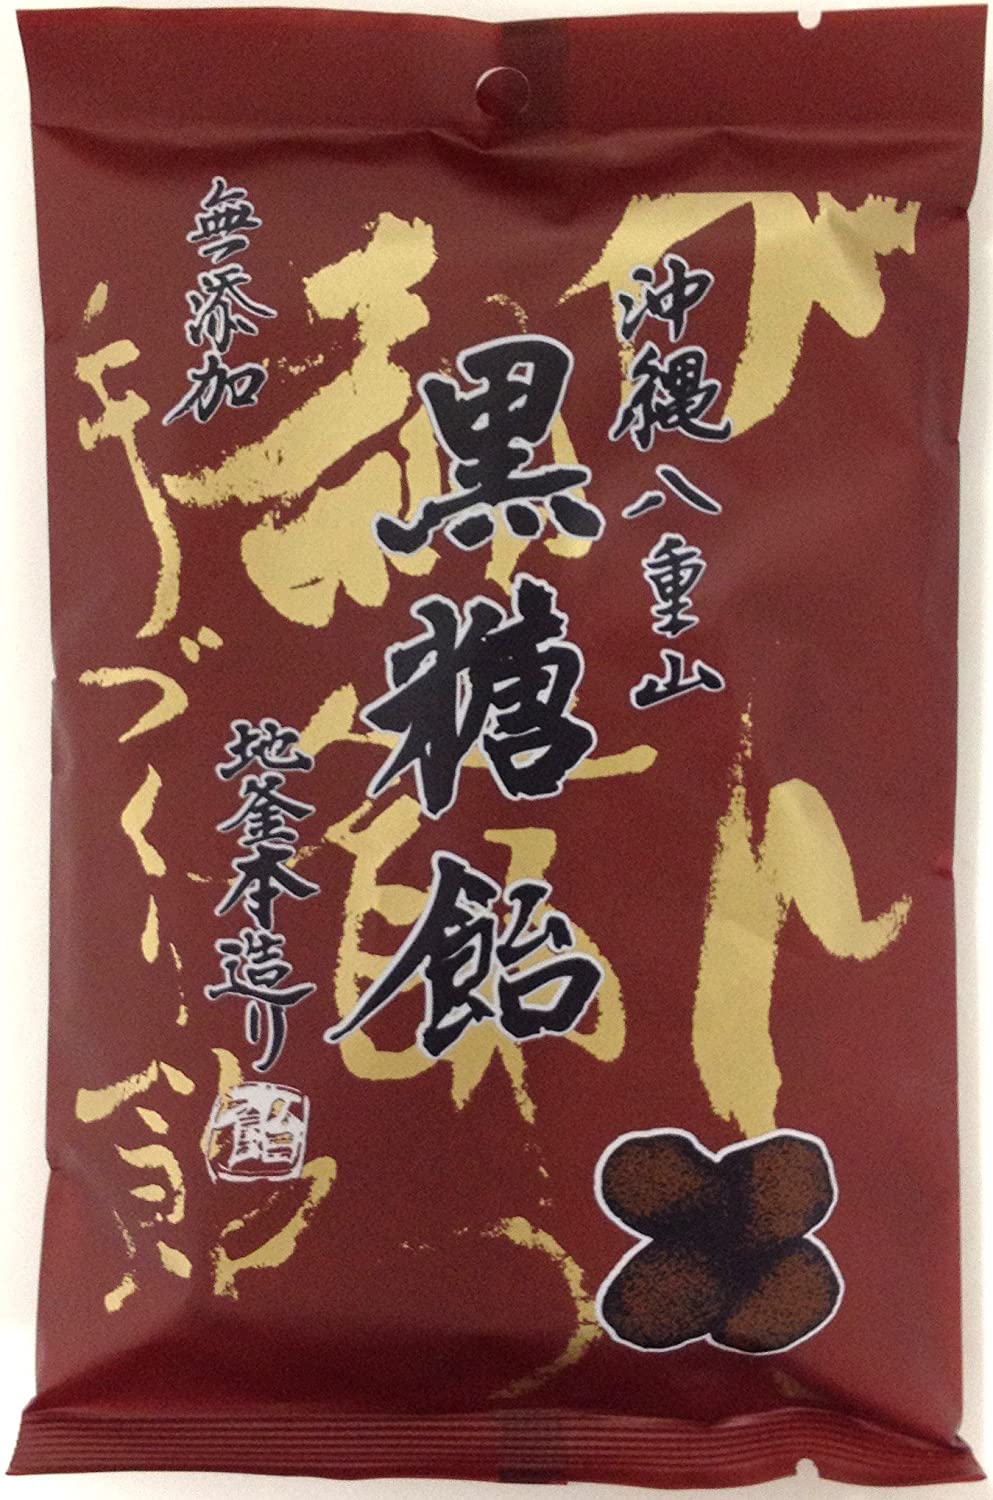 沖縄八重山
黒糖飴
無添加
地釜本造り
飴
手づくり飴